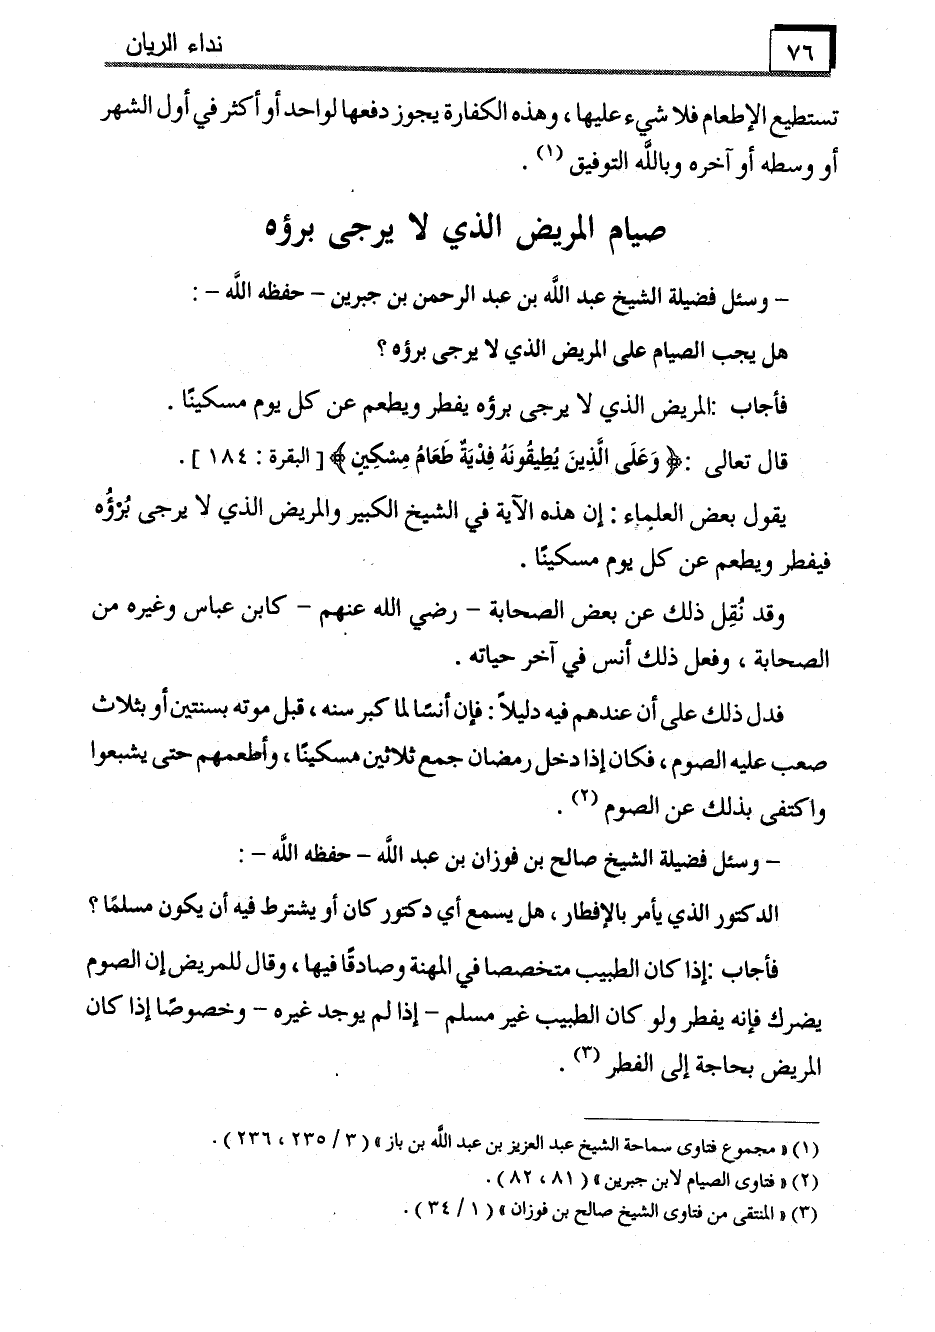 ٧٦
نداء الريان
تستطيع الإطعام فلا شيء عليها ، وهذه الكفارة يجوز دفعها لواحد أو أكثر في أول الشهر
أو وسطه أو آخره وباللَّه التوفيق (١) .
صيام المريض الذي لا يرجى برؤه
– وسئل فضيلة الشيخ عبد اللَّه بن عبد الرحمن بن جبرين – حفظه اللَّه – :
هل يجب الصيام على المريض الذي لا يرجى برؤه ؟
فأجاب :المريض الذي لا يرجى برؤه يفطر ويطعم عن كل يوم مسكينًا .
قال تعالى :﴿ وَعَلَى الَّذِينَ يُطِيقُونَهُ فِدْيَةٌ طَعَامُ مِسْكِينٍ ﴾ [ البقرة : ١٨٤ ] .
يقول بعض العلماء : إن هذه الآية في الشيخ الكبير والمريض الذي لا يرجى بُرْؤُه
فيفطر ويطعم عن كل يوم مسكينًا .
وقد نُقِل ذلك عن بعض الصحابة – رضي الله عنهم – كابن عباس وغيره من
الصحابة ، وفعل ذلك أنس في آخر حياته .
فدل ذلك على أن عندهم فيه دليلاً : فإن أنسًا لما كبر سنه ، قبل موته بسنتين أو بثلاث
صعب عليه الصوم ، فكان إذا دخل رمضان جمع ثلاثين مسكينًا ، وأطعمهم حتى يشبعوا
واكتفى بذلك عن الصوم (٢) .
– وسئل فضيلة الشيخ صالح بن فوزان بن عبد اللَّه – حفظه اللَّه – :
الدكتور الذي يأمر بالإفطار ، هل يسمع أي دكتور كان أو يشترط فيه أن يكون مسلمًا ؟
فأجاب :إذا كان الطبيب متخصصا في المهنة وصادقًا فيها ، وقال للمريض إن الصوم
يضرك فإنه يفطر ولو كان الطبيب غير مسلم – إذا لم يوجد غيره – وخصوصًا إذا كان
المريض بحاجة إلى الفطر (٣) .
(١) « مجموع فتاوى سماحة الشيخ عبد العزيز بن عبد اللَّه بن باز » ( ٣ / ٢٣٥ ، ٢٣٦ ) .
(٢) « فتاوى الصيام لابن جبرين » ( ٨١ ، ٨٢ ) .
(٣) « المنتقى من فتاوى الشيخ صالح بن فوزان » ( ١ / ٣٤ ) .